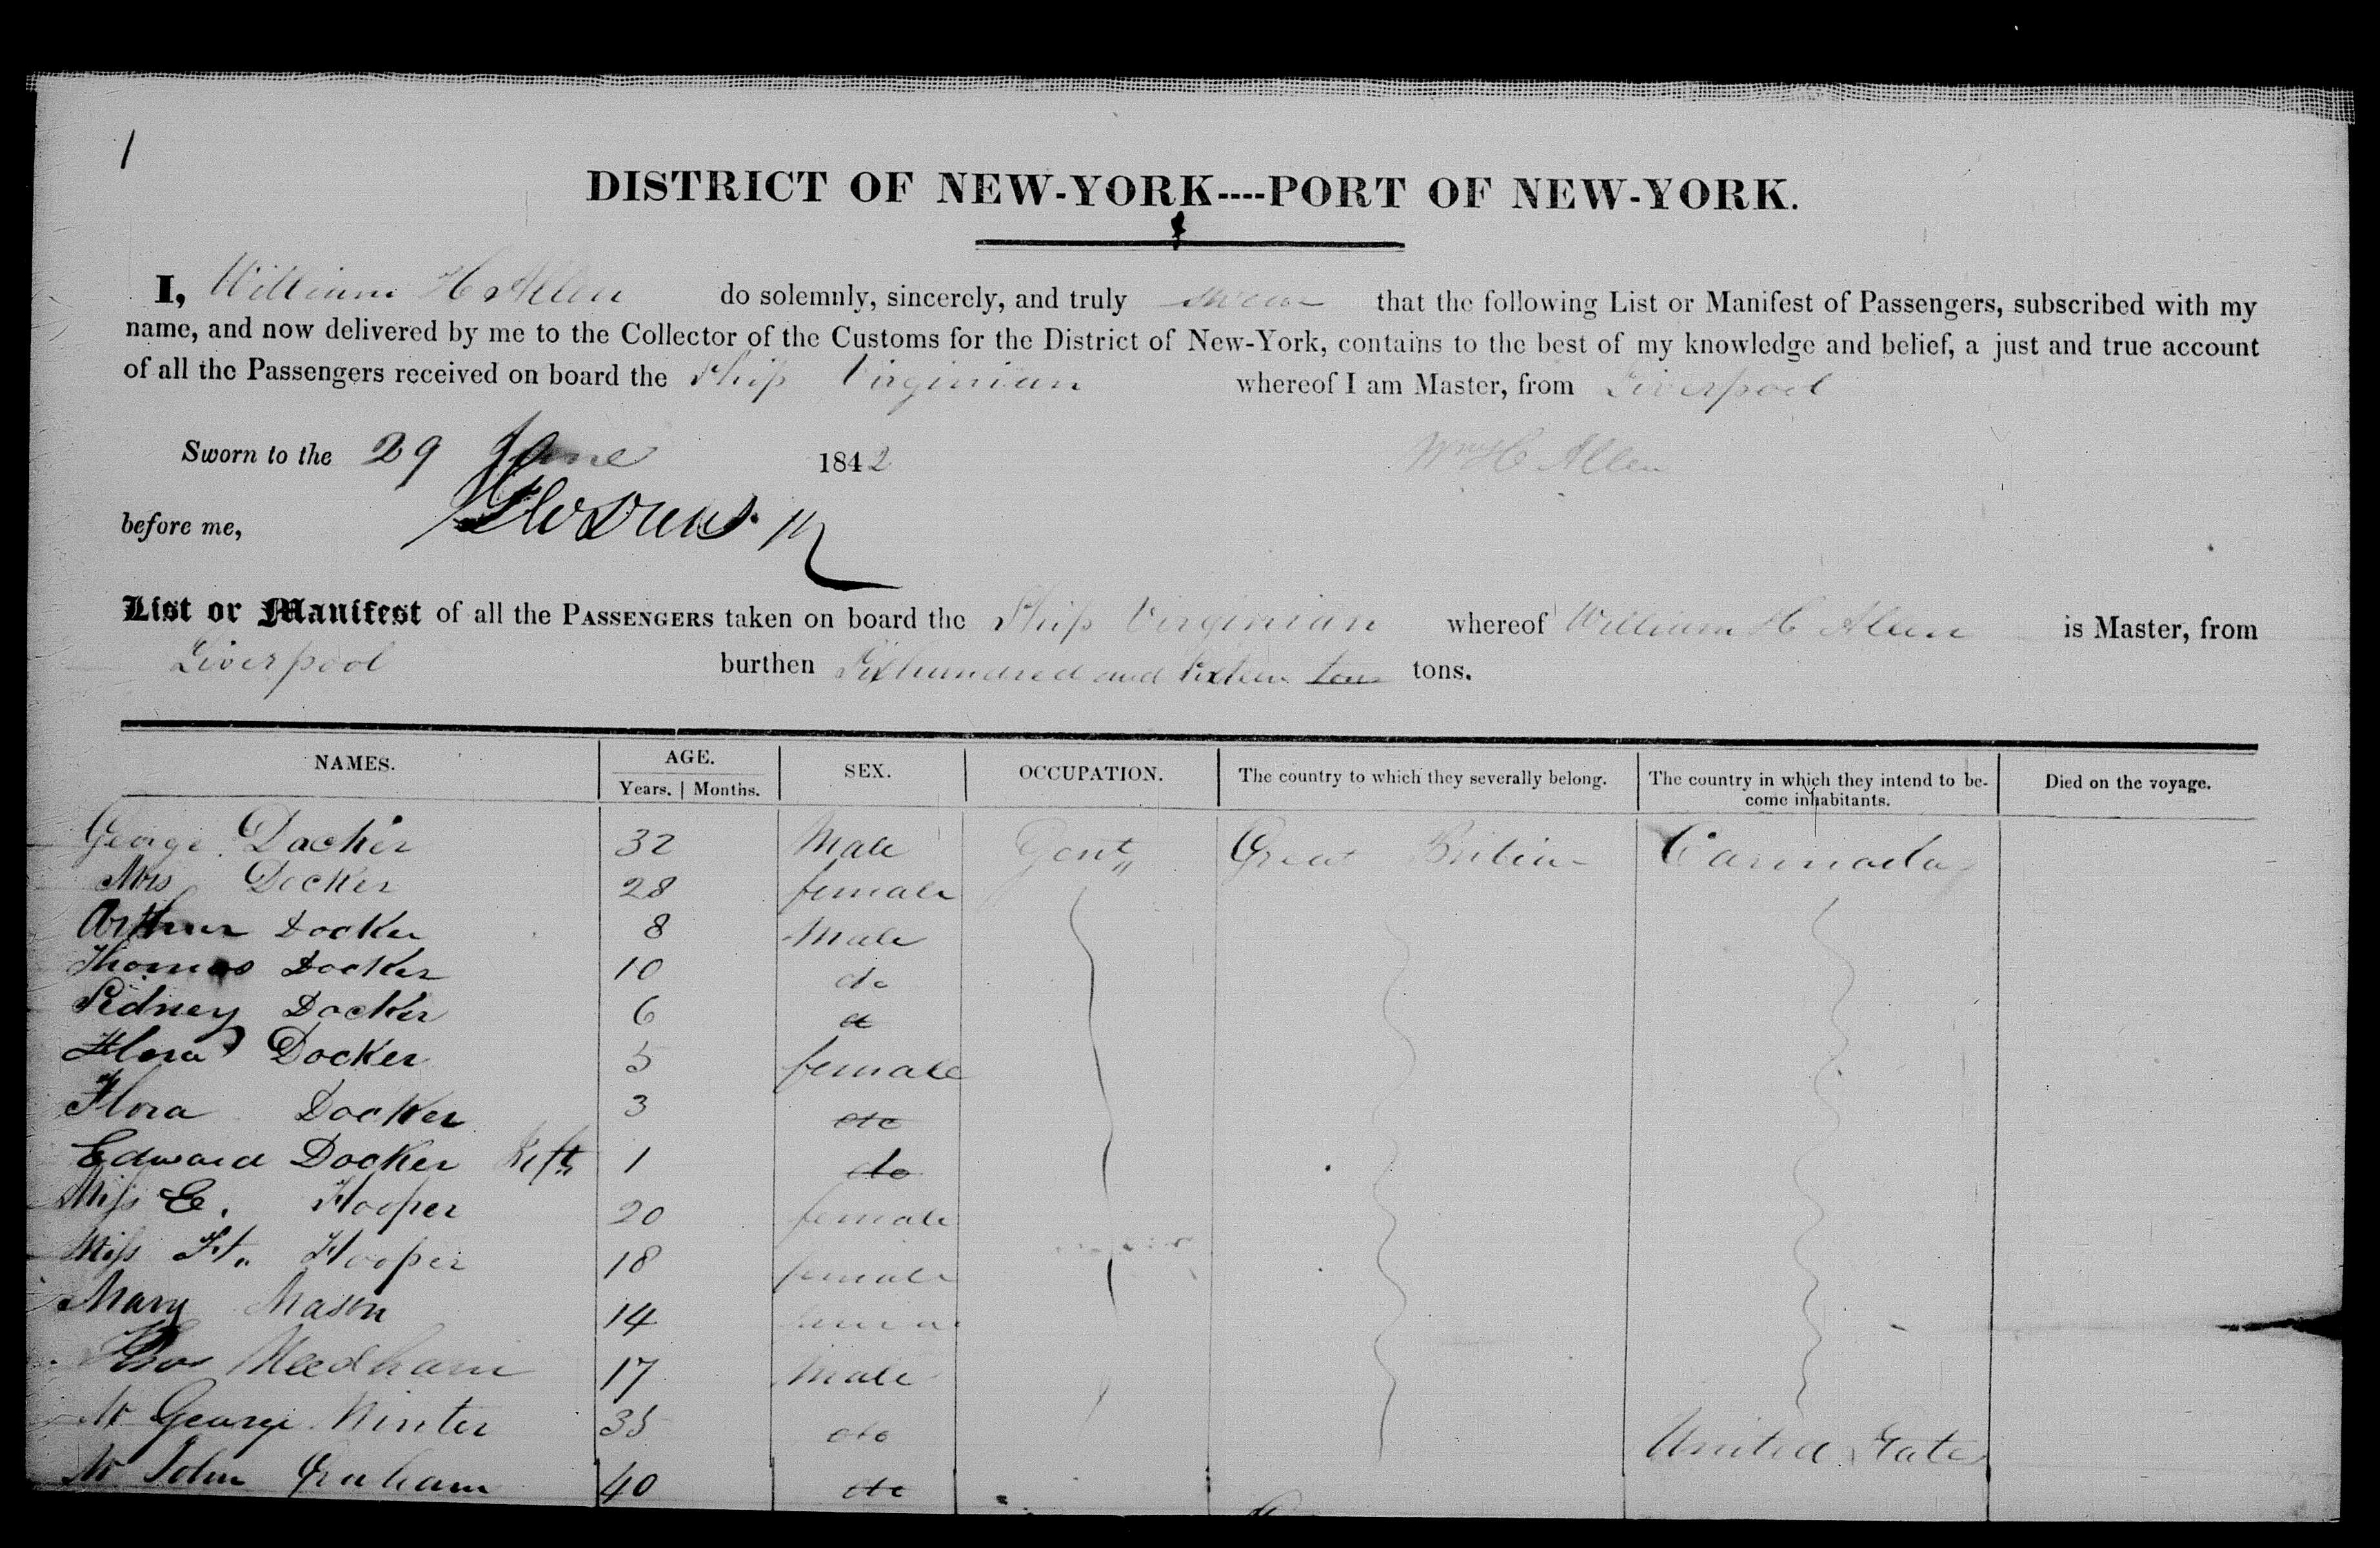 1
DISTRICT OF NEW-YORK----PORT OF NEW-YORK.
I, William H Allen do solemnly, sincerely, and truly swear that the following List or Manifest of Passengers, subscribed with my
name, and now delivered by me to the Collector of the Customs for the District of New-York, contains to the best of my knowledge and belief, a just and true account
of all the Passengers received on board the Ship Virginian whereof I am Master, from Liverpool
Sworn to the 29 June 1842 Wm H Allen
before me,
List or Manifest of all the PASSENGERS taken on board the Ship Virginian whereof William H Allen is Master, from
Liverpool burthen Six hundred and Sixteen tons tons.
NAMES. AGE. SEX. OCCUPATION. The country to which they severally belong. The country in which they intend to be-
Years. Months. come inhabitants. Died on the voyage.
George Docker 32 Male Gent Great Britian Cannada
Mrs Docker 28 female
Arthur Docker 8 Male
Thomas Docker 10 do
Sidney Docker 6 do
Docker 5 female
Flora Docker 3 do
Edward Docker 1 do
Miss E. Hooper 20 female
Miss H. Hooper 18 female
Mary Mason 14
Thos Needham 17 Male
Mr George Winter 35 do United States
Mr John Graham 40 do